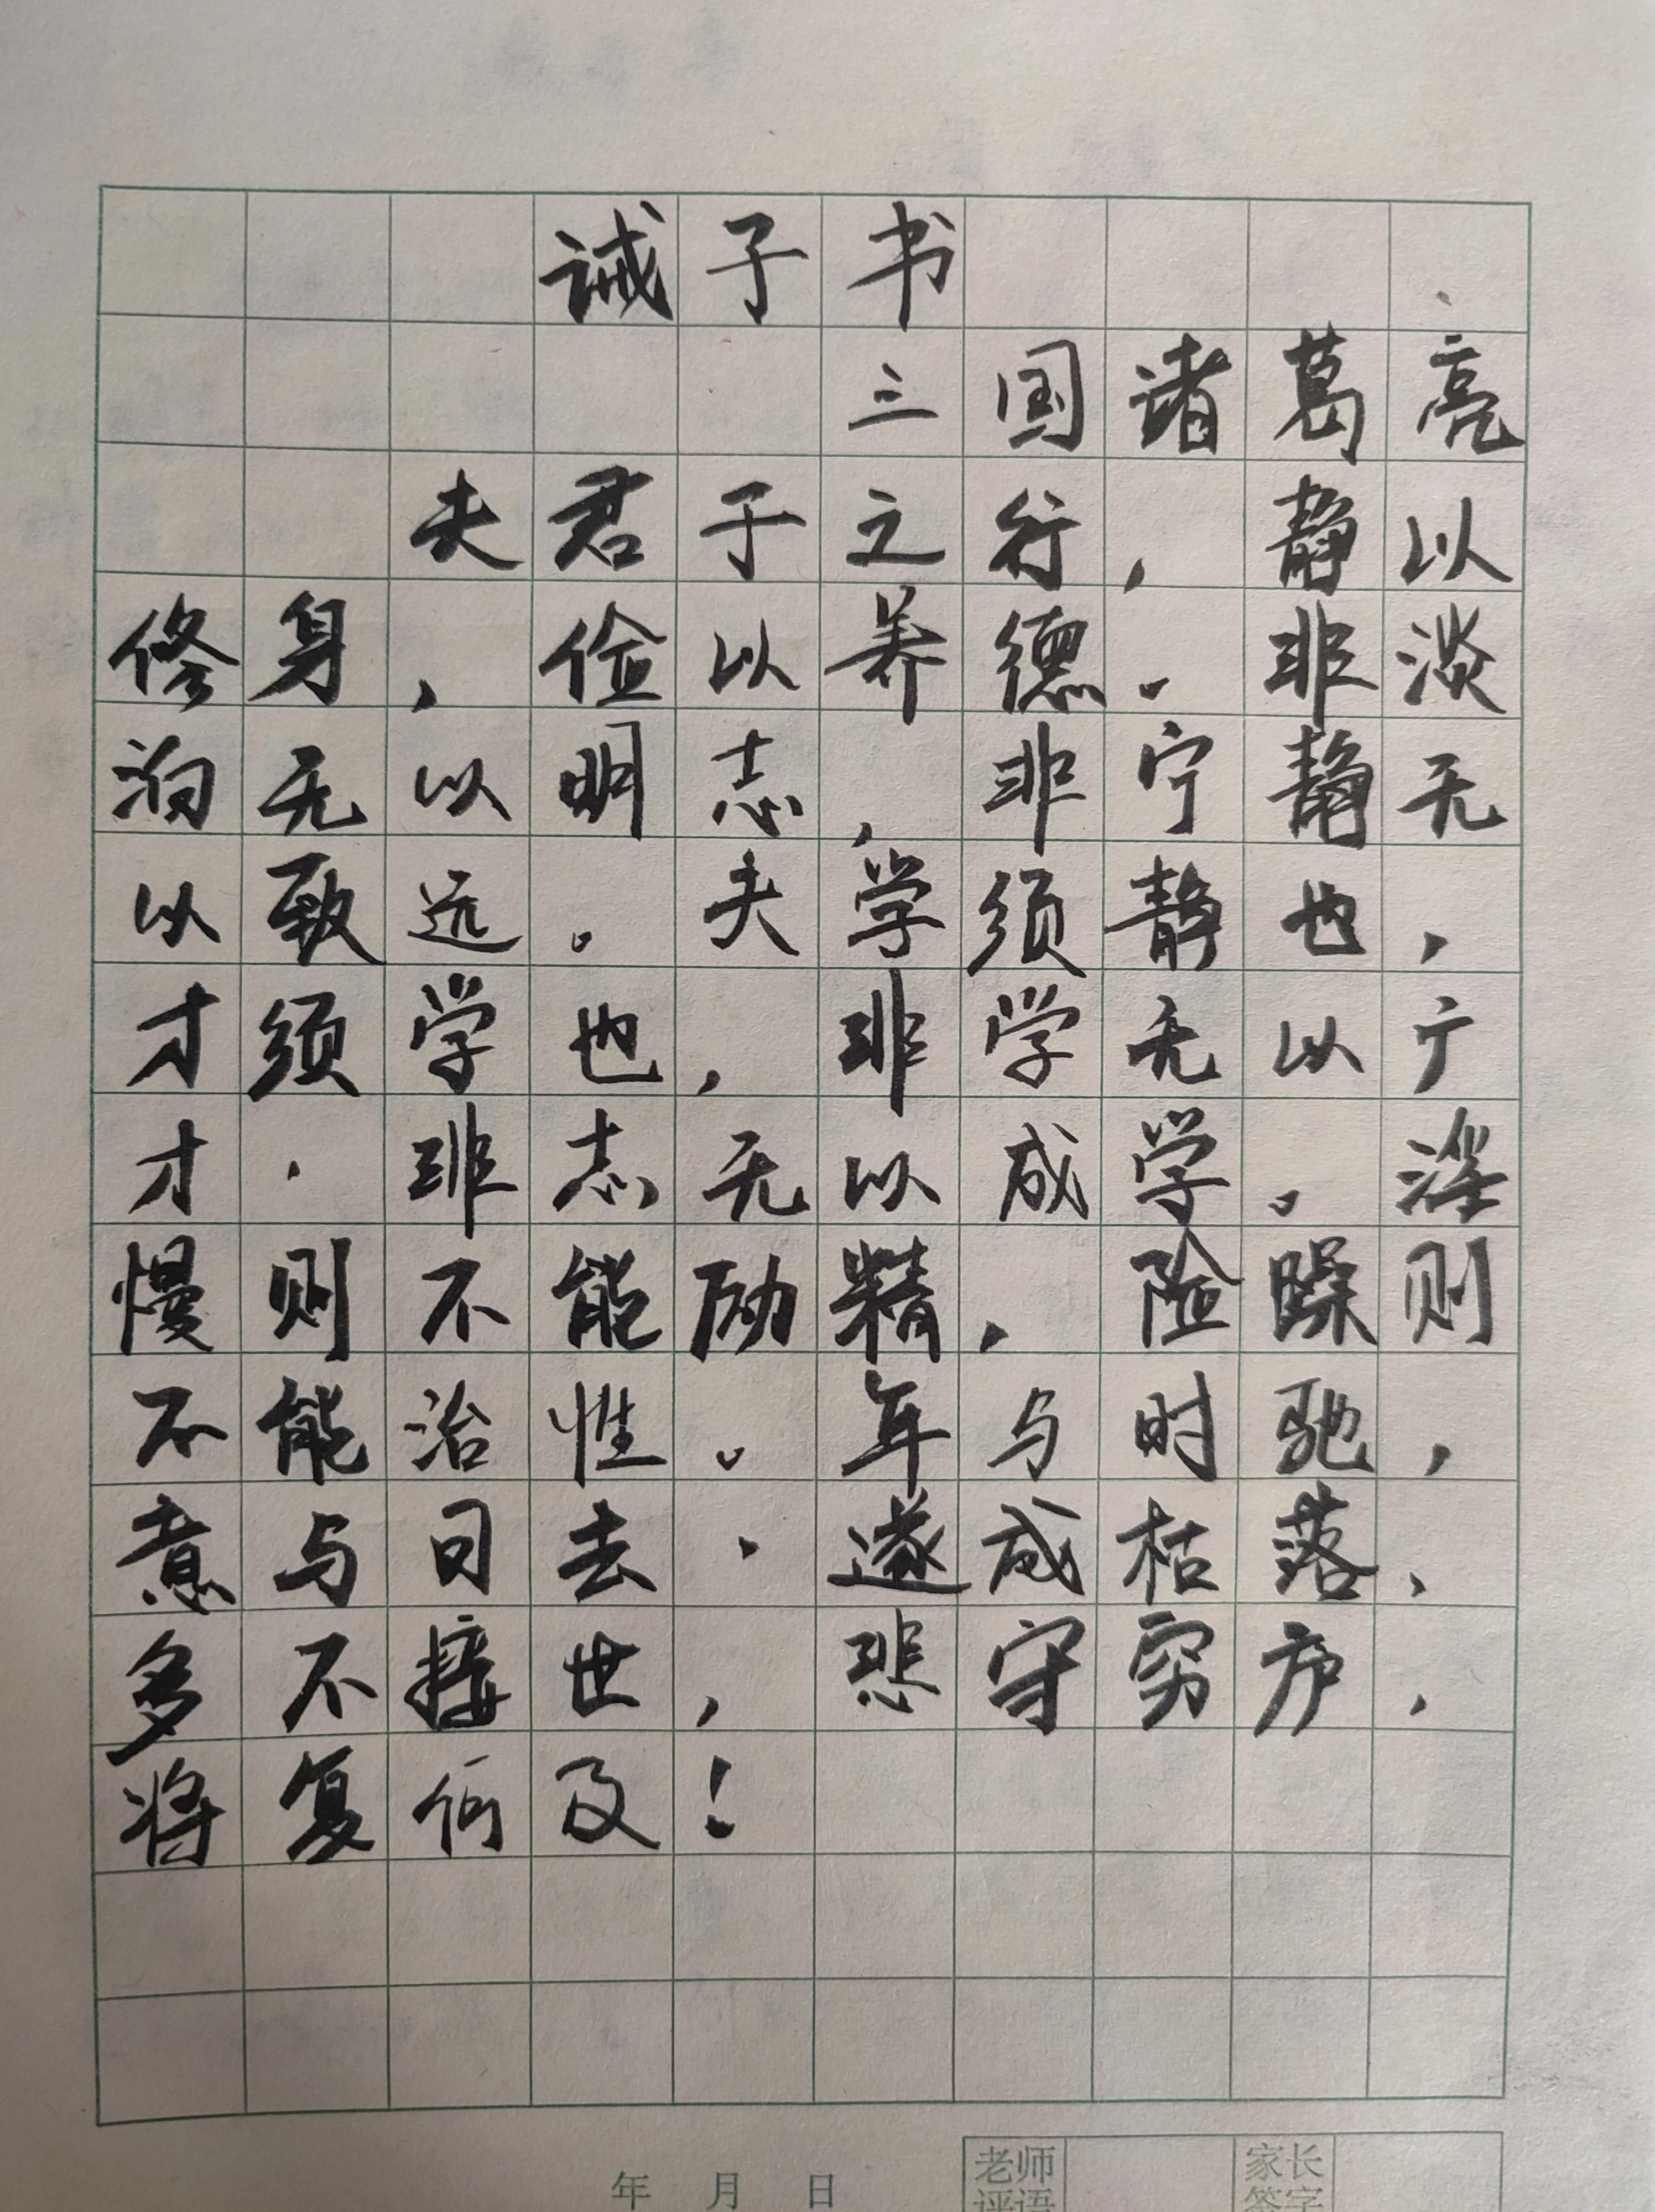 诫子书
三国诸葛亮
夫君子之行，静以
修身，俭以养德。非淡
泊无以明志，非宁静无
以致远。夫学须静也，
才须学也，非学无以广
才，非志无以成学。淫
慢则不能励精，险躁则
不能治性。年与时驰，
意与日去，遂成枯落，
多不接世，悲守穷庐，
将复何及！
年 月 日
老师评语
家长签字